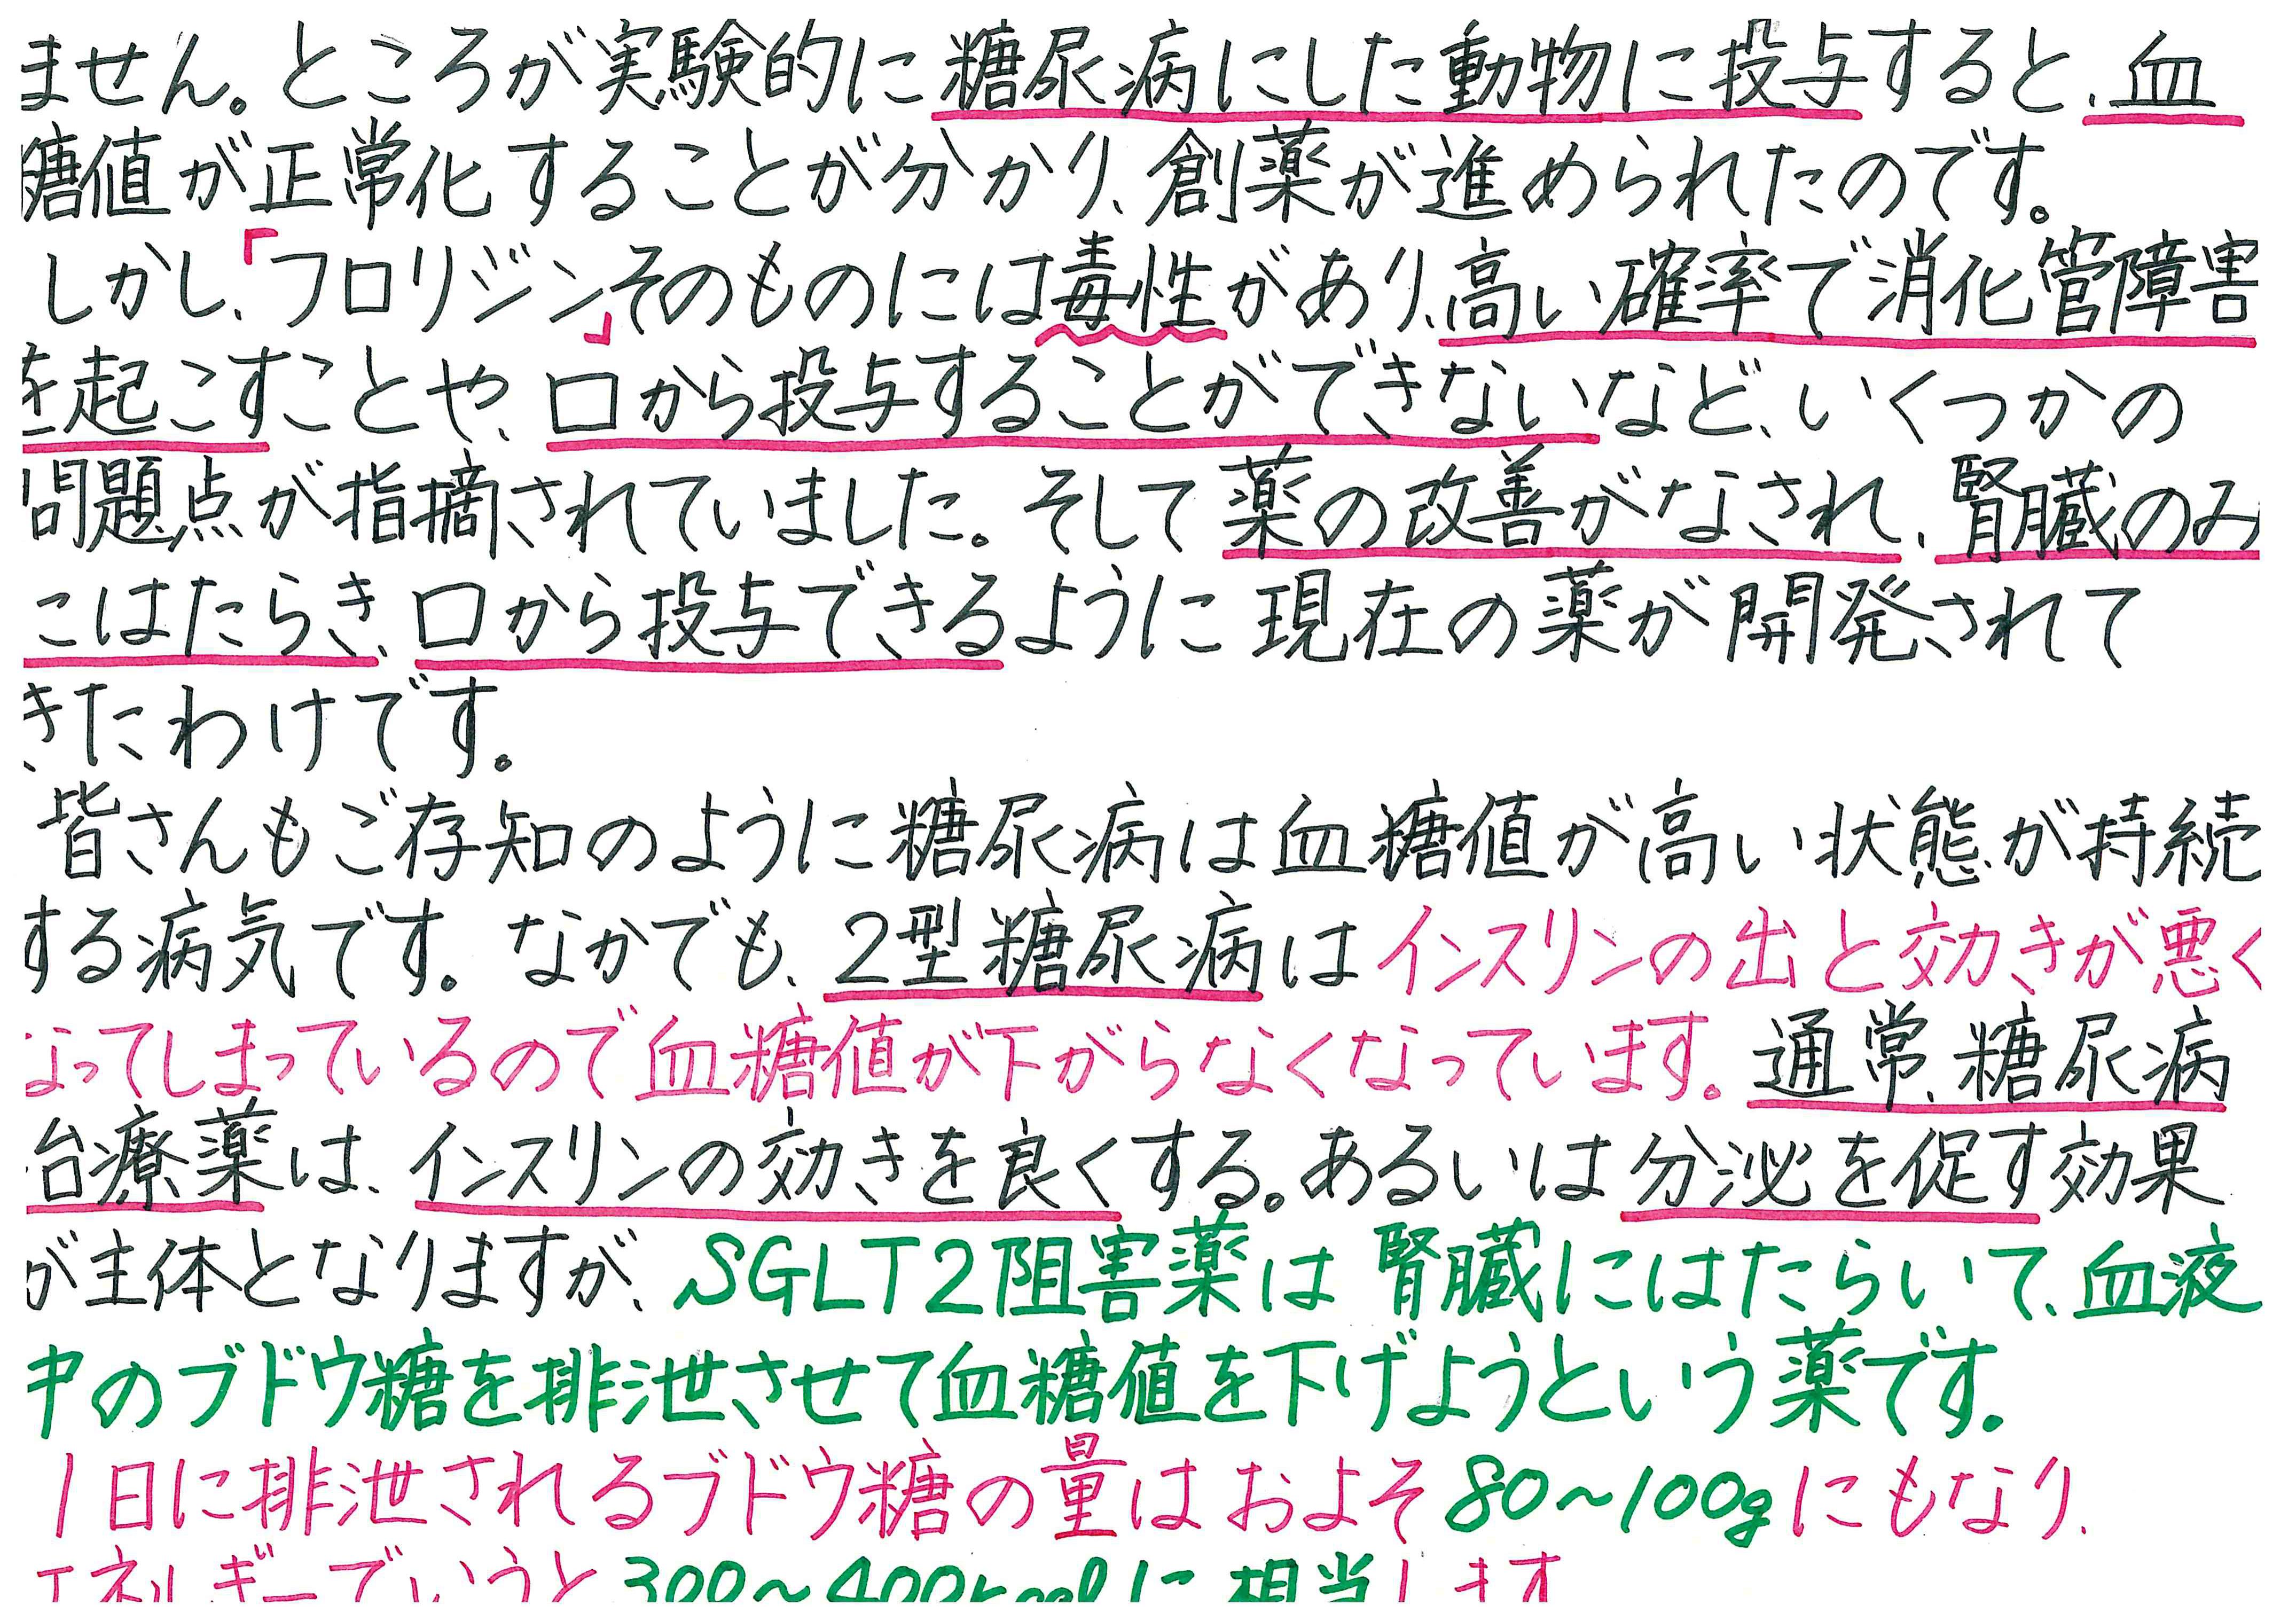 ません。ところが実験的に糖尿病にした動物に投与すると、血
糖値が正常化することが分かり、創薬が進められたのです。
しかし、「フロリジン」そのものには毒性があり、高い確率で消化管障害
を起こすことや、口から投与することができないなど、いくつかの
問題点が指摘されていました。そして薬の改善がなされ、腎臓のみ
にはたらき、口から投与できるように現在の薬が開発されて
きたわけです。
皆さんもご存知のように糖尿病は血糖値が高い状態が持続
する病気です。なかでも、2型糖尿病はインスリンの出と効きが悪く
なってしまっているので血糖値が下がらなくなっています。通常、糖尿病
治療薬は、インスリンの効きを良くする。あるいは分泌を促す効果
が主体となりますが、SGLT2阻害薬は腎臓にはたらいて、血液
中のブドウ糖を排泄させて血糖値を下げようという薬です。
1日に排泄されるブドウ糖の量はおよそ80~100gにもなり、
エネルギーでいうと300~400kcalに相当します